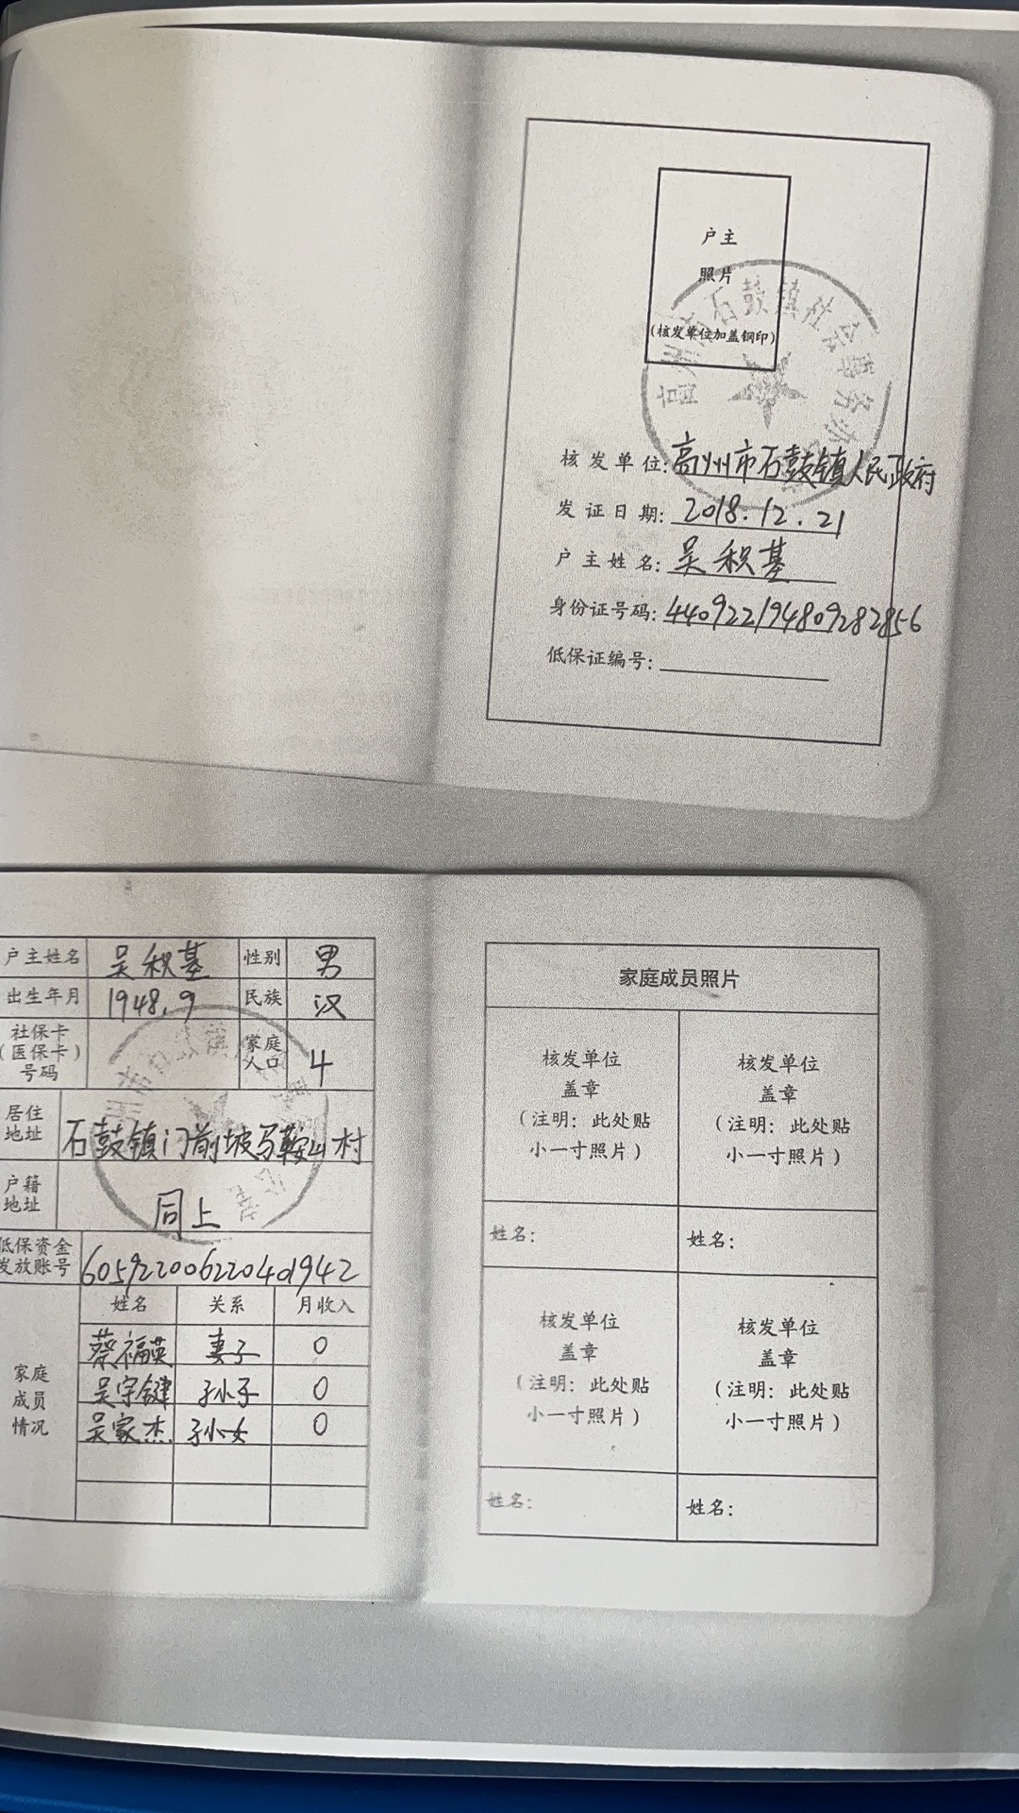 户主
照片
(核发单位加盖钢印)
高州市石鼓镇社会事务办
核发单位:高州市石鼓镇人民政府
发证日期:2018.12.21
户主姓名:吴积基
身份证号码:440922194809282856
低保证编号:
户主姓名 吴积基 性别 男
出生年月 1948.9 民族 汉
社保卡(医保卡)号码 家庭人口 4
居住地址 石鼓镇门前坡马鞍山村
户籍地址 同上
低保资金发放账号 605922006220401942
家庭成员情况
姓名 关系 月收入
蔡福英 妻子 0
吴宇键 孙子 0
吴家杰 孙女 0
家庭成员照片
核发单位 核发单位
盖章 盖章
(注明:此处贴 (注明:此处贴
小一寸照片) 小一寸照片)
姓名: 姓名:
核发单位 核发单位
盖章 盖章
(注明:此处贴 (注明:此处贴
小一寸照片) 小一寸照片)
姓名: 姓名: